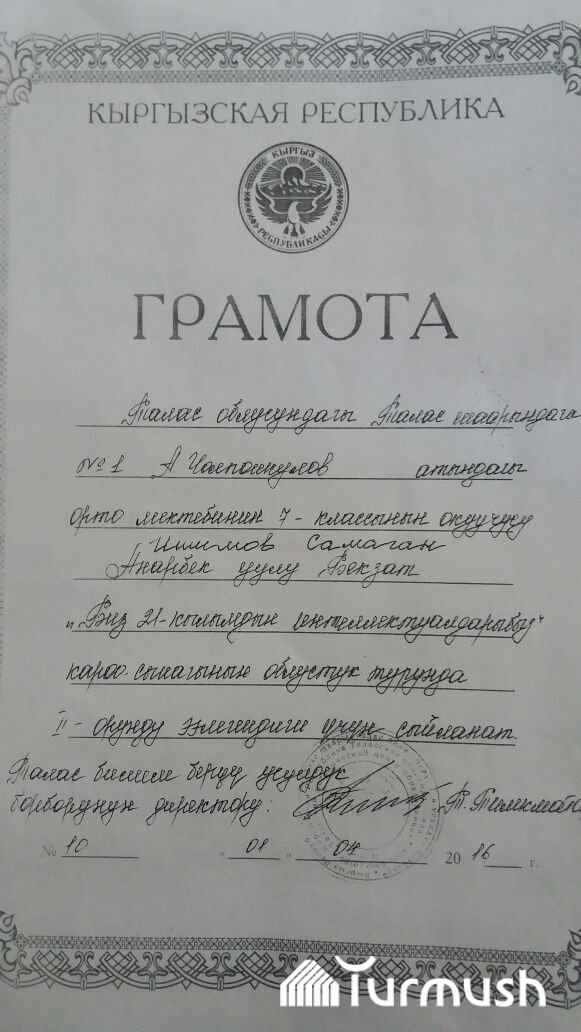 КЫРГЫЗСКАЯ РЕСПУБЛИКА
КЫРГЫЗ
РЕСПУБЛИКАСЫ
ГРАМОТА
Талас облусундагы Талас шаарындагы
№1 А Чолпонкулов атындагы
орто мектебинин 7-классынын окуучусу
Ишимов Самаган
Анарбек уулу Бекзат
"Биз 21-кылымдын интеллектуалдарыбыз"
кароо-сынагынын облустук турунда
II-орунду ээлегендиги үчүн сыйланат
Талас билим берүү усулдук
борборунун директору: Т.
№ 10 « 01 » 04 20 16 г.
Turmush